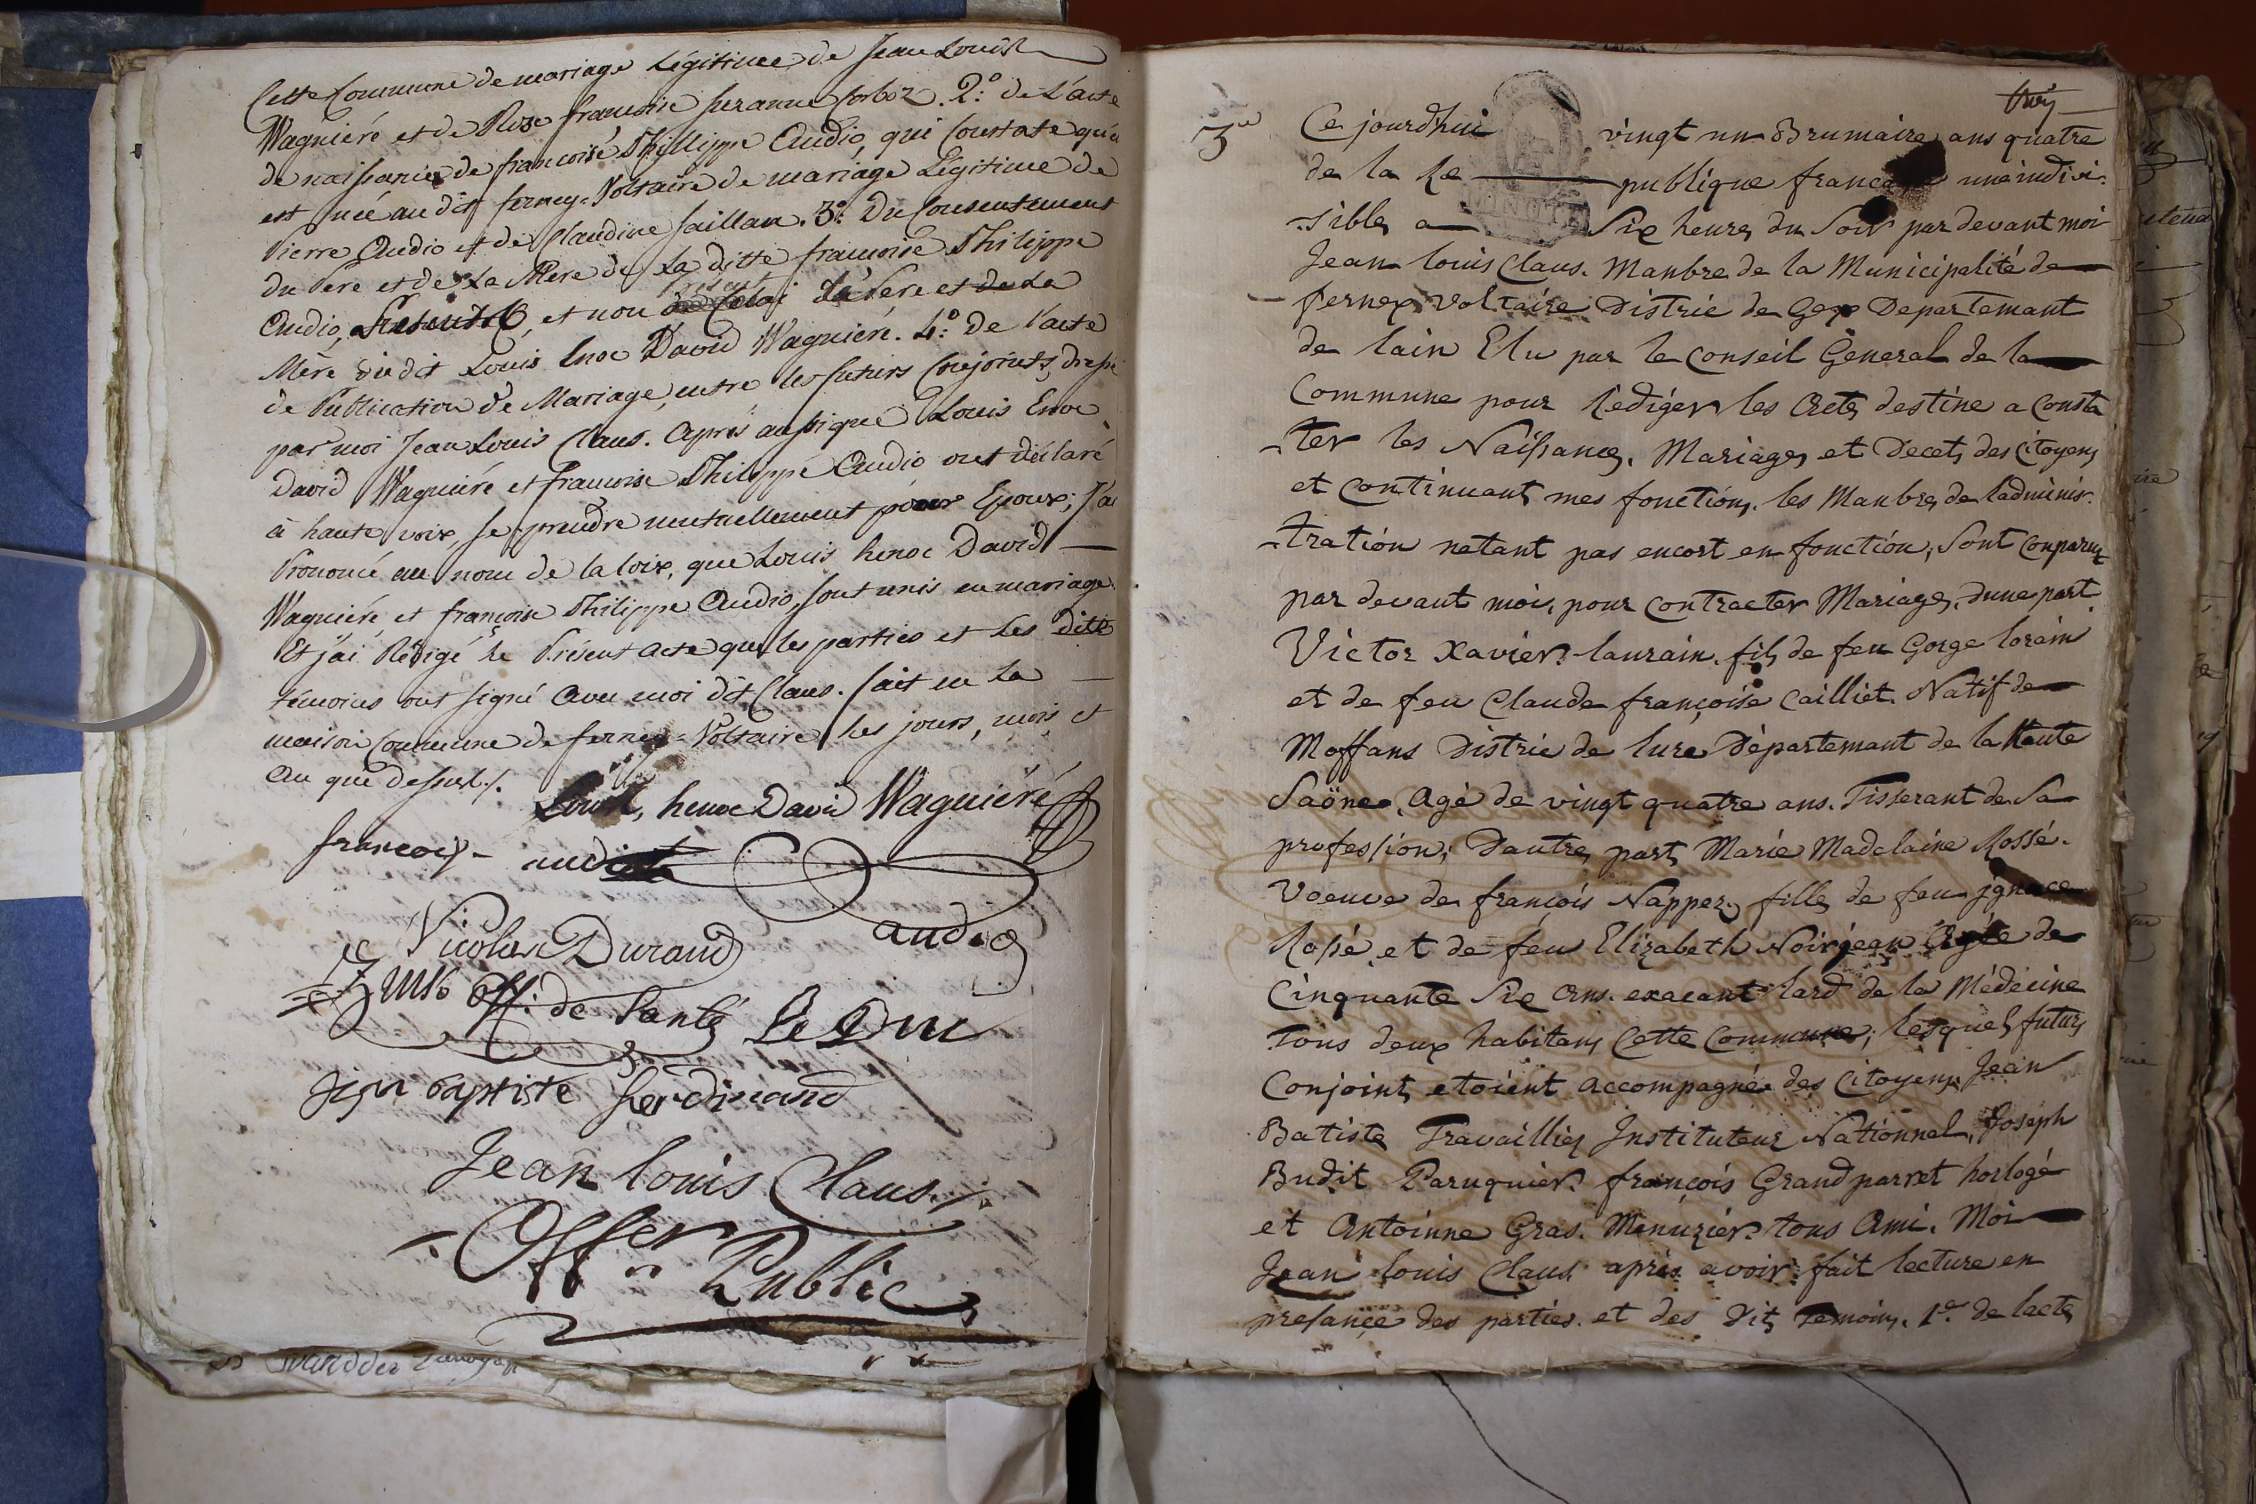 Cette Commune de mariage Légitime de Jean Louis
Wagniéré et de Rose françoise Suzanne Corboz. 2.° de L'acte
de naissance de françoise Phillippe Audio, qui Constate qu'elle
est née au dit ferney-Voltaire de mariage Légitime de
Pierre Audio et de Claudine Saillan. 3.° Du Consentement
du Pere et de La Mere de La ditte francoise Philippe
Audio, et non Celui de Pere et de La
Mère du dit Louis Enoc David Wagniéré. 4.° De l'acte
de Publication de Mariage, entre les futurs Conjoints, dressé
par moi Jean Louis Claus. Après aussi que Louis Enoc
David Wagniéré et francoise Philippe Audio ont déclaré
à haute voix, se prendre mutuellement pour Epoux; J'ai
Prononcé au nom de la loix, que Louis henoc David
Wagniéré et françoise Philippe Audio, sont unis en mariage.
Et j'ai Rédigé le Présent acte que les parties et les dits
témoins ont signé avec moi dit Claus. fait en La
maison Commune de ferney-Voltaire les jours, mois et
an que dessus./.
Louis, henoc David Wagniéré
francois audio
audio
Nicolas Durand
off. de Santé Le Duc
Jean baptiste ferdinand
Jean louis Claus./.
Offer Public
3e Ce jourd'hui vingt un Brumaire ans quatre
de la Re publique francaise une indivi-
-sible a Six heures du Soir par devant moi
Jean louis Claus. Manbre de la Municipalité de
fernex Voltaire Distric de Gex Departemant
de lain Elu par le Conseil General de la
Commune pour Rediger les Actes destine a Consta
-ter les Naissances. Mariages et Decets des Citoyens
et Continuant mes fonctions. les Manbres de ladminis-
-tration netant pas encort en fonction, Sont Conparus
par devant moi, pour Contracter Mariages, dune part
Victor Xavier laurain. fils de feu Gorge lorain
et de feu Claude françoise Cailliet Natif de
Moffans Distric de lure Département de la Haute
Saöne, Agé de vingt quatre ans. Tisserant de Sa
profession; Dautres parts Marie Madelaine Rossé.
Voeuve de françois Napper, fille de feu jgnace
Rossé et de feu Elizabeth Noirjean Agée de
Cinquante Six Ans. exacant lard de la Médecine
Tous deux habitans Cette Commune; lesquels futurs
Conjoints etoient accompagnée des Citoyens Jean
Batiste Travaillier Instituteur Nationnel, Joseph
Budit Paruquier. françois Grandparret horlogé
et Antoinne Gras. Menuzier tous Ami. Moi
Jean louis Claus après avoir fait lecture en
presançe des parties et des dits Temoins. 1°. de lacte